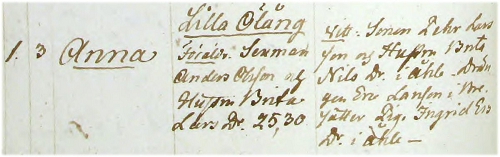 Lilla Ölång
1. 3 Anna
Föräldr. Seeman
Anders Olsson og
Hustru Brita
Lars Dr. 25,30
Vitt: Sonen Pehr Lars
son og Hustru Brita
Nils Dr. i Åhle. Drän
gen Eric Larsson i
sätter Pig. Ingrid Ers
Dr. i Åhle —